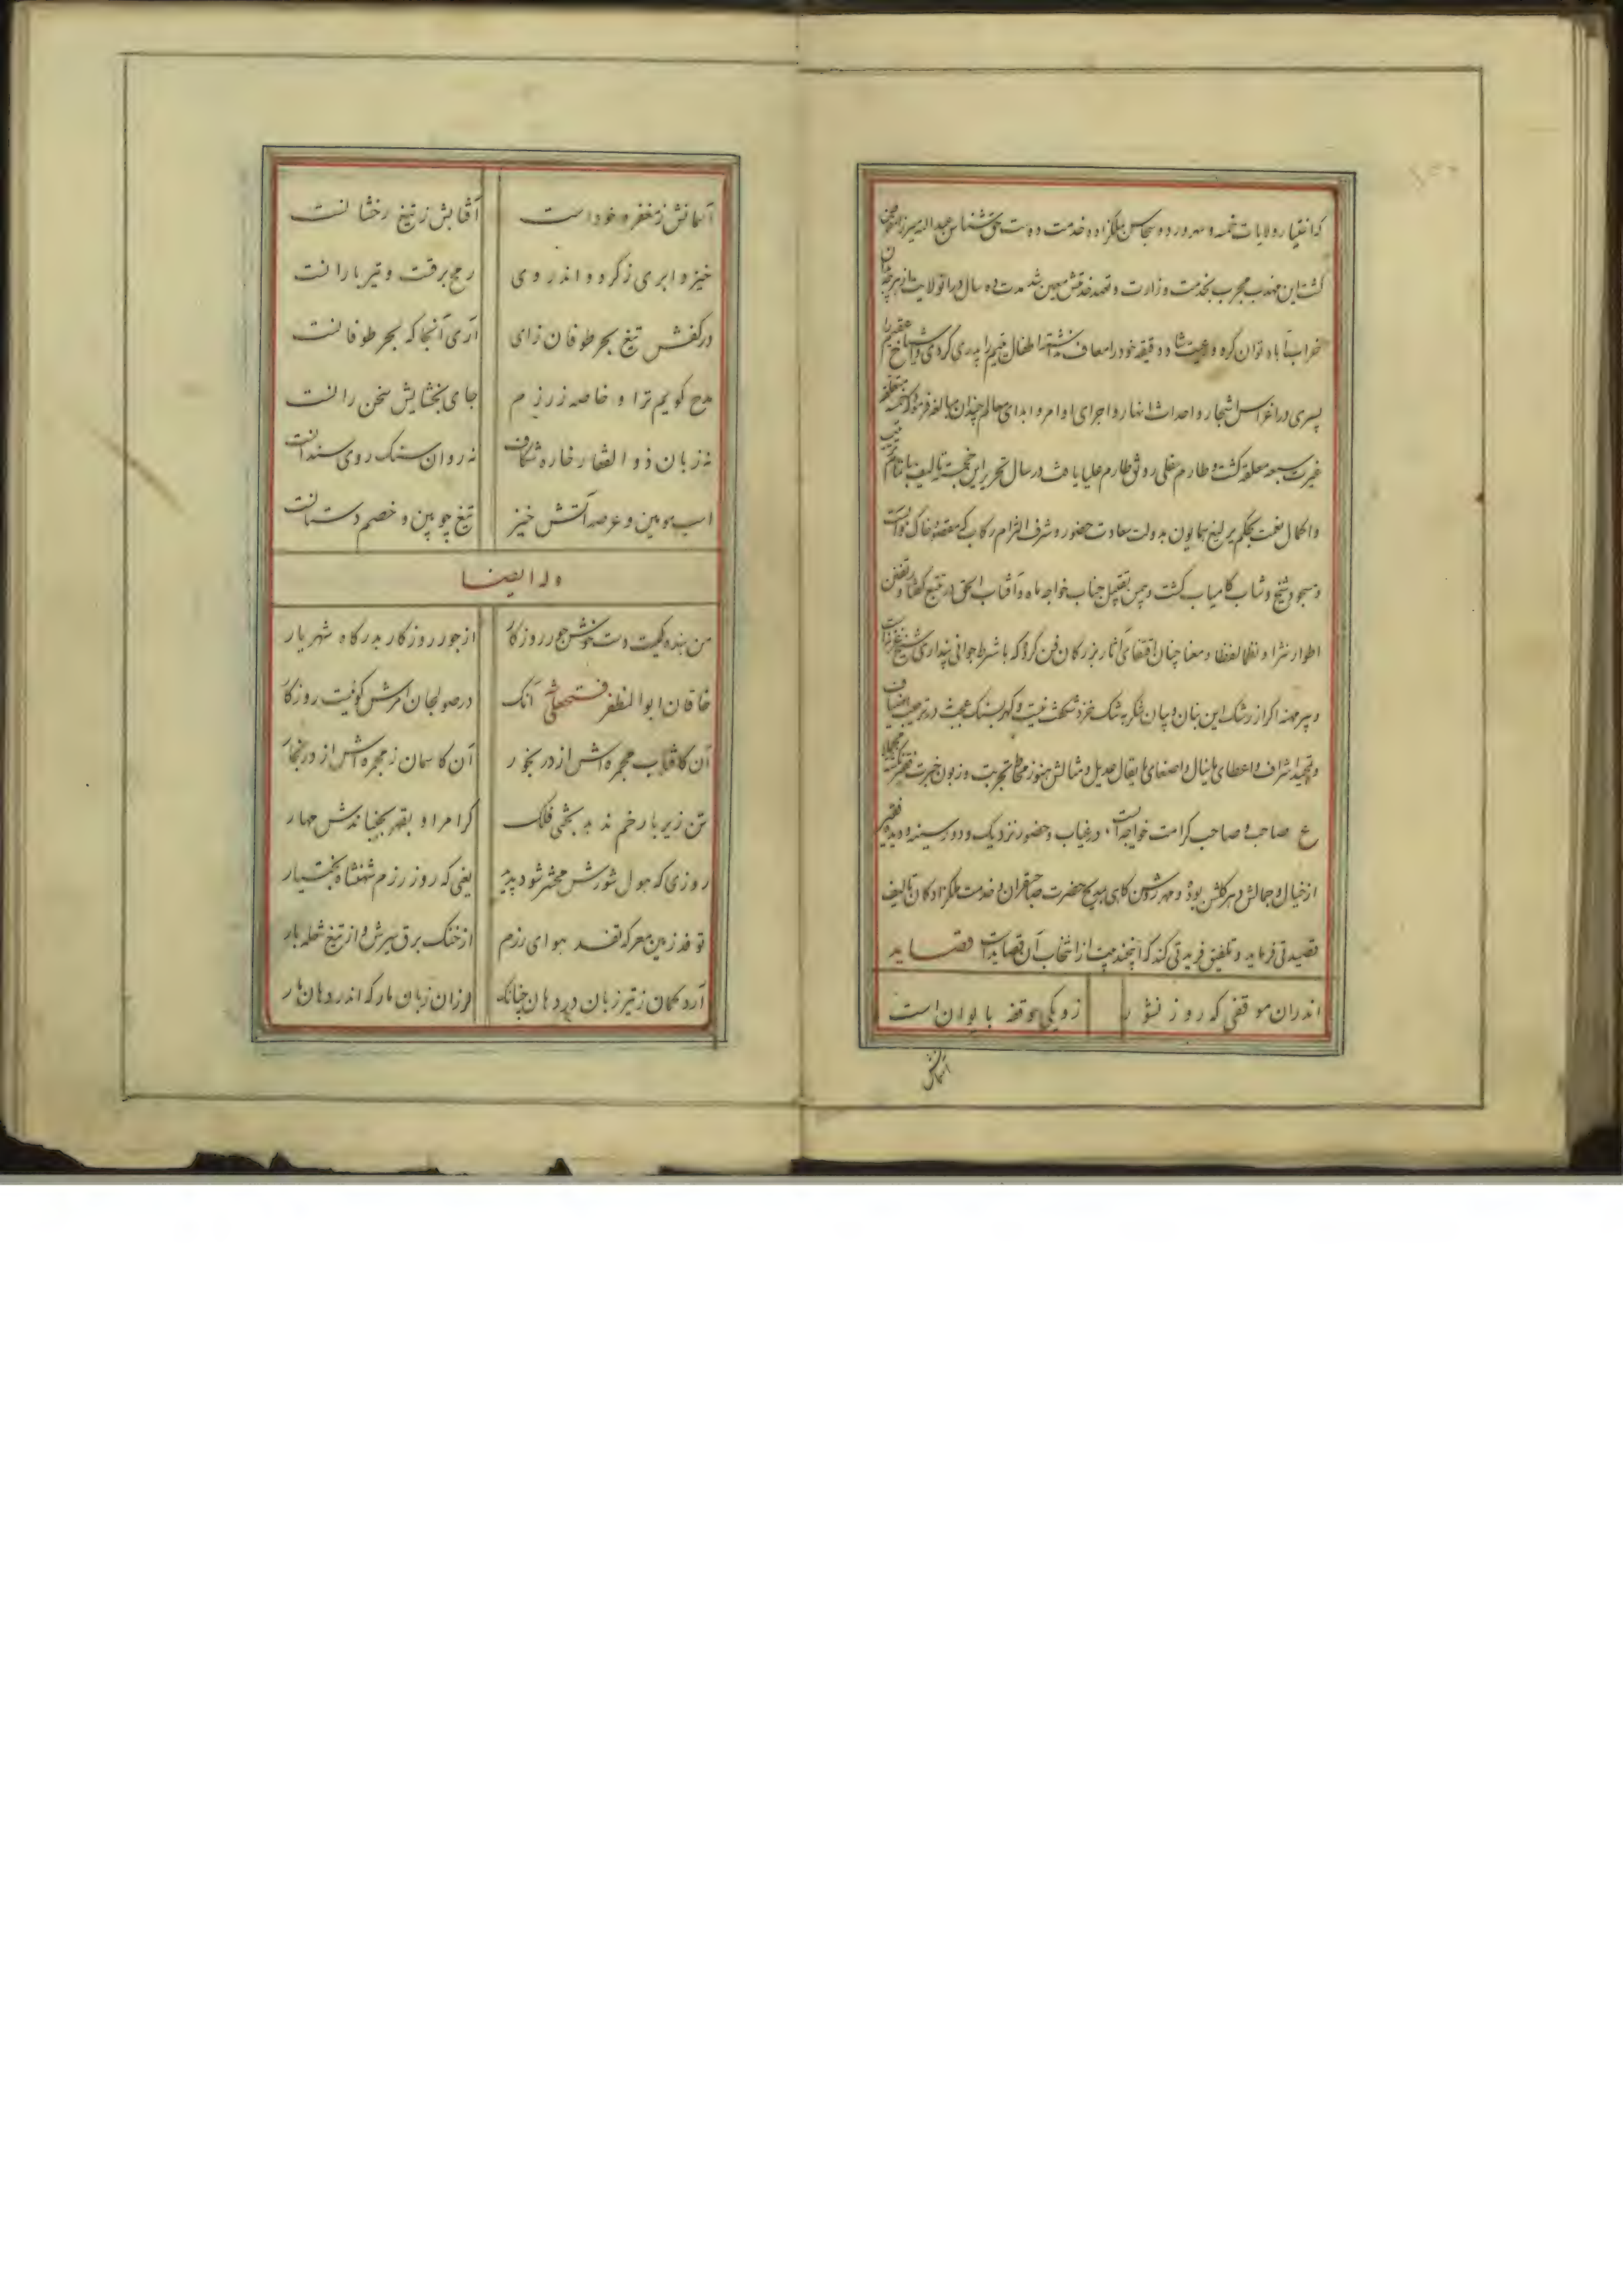 که اختیار ولایات خمسه و سهرورد و سجاس بملکزاده خدمت دوست حق شناس عبدالله میرزا
گشت این مهذب مجرب بخدمت وزارت و تعهد خدمتش معین شد مدت ده سال در آن ولایت
خراب آباد توان کرد و رعیت شاه دقیقه خود را معاف نداشته اطفال یتیم را پدری کردی و
پسری در اغراس اشجار و احداث انهار و اجرای اوامر و ابدای معالم چندان مبالغه فرمود که
غیرت سبعه معلقه گشت و طارم سفلی رونق طارم علیا یافت در سال تحریر این خجسته تالیف
و اکمال نعمت بحکم یرلیغ همایون بدولت سعادت حضور و شرف التزام رکاب که مقصود خاک و
و مسجود شیخ و شاب کامیاب گشت و پس تقبیل جناب خواجه ماه و آفتاب الحق در تتبع گفتار و تفنن
اطوار نثرا و نظما لفظا و معنا چنان اقتفای آثار بزرگان فن کرده که با شرط جوانی پنداری شیخ
و پیر مهنه اگر از رشک این بنان و بیان شکر به تنگ خرد شکفت نیست و گهر بسنگ
و تمجید اشراف و اعطای مانیال و اصغای مایقال عدیل و مثالش هنوز
ع صاحب و صاحب کرامت خواجه است در غیاب و حضور نزدیک و دور سینه و دیده فقیر
از خیال و جمالش دهر گلشن بوده و مهر روشن گاهی بمدیح حضرت صاحبقران و خدمت ملکزادگان تالیف
قصیدتی فرماید و تلفیق فریدتی کند که اینچند بیت از انتخاب آن قصاید است قصاید
اندران موقفی که روز نشور زو یکی موقف با یوان است
آسمانش
آسمانش ز مغفر و خود است آفتابش ز تیغ رخشانست
خیزد ابری ز گرد و اندر وی رمح برقست و تیر بارانست
در کفش تیغ بحر طوفان زای آری آنجا که بحر طوفانست
مدح گویم ترا و خاصه ز رزم جای بخشایش سخن رانست
نه زبان ذوالفقار خاره شکاف نه روان سنگ روی سندانست
اسب مومین و عرصه آتش خیز تیغ چوبین و خصم دستانست
وله ایضا
من بنده کیست دست خوش جور روزگار از جور روزگار بدرگاه شهریار
خاقان ابوالمظفر فتحعلی شه آنک در صولجان امرش گوئیست روزگار
آن کافتاب مجمره اش از در بخور آن کاسمان ز مجمره اش از در بخار
تن زیر بار خم ندهد بختی فلک گر امر او بقهر بجنباندش مهار
روزی که هول شورش محشر شود پدید یعنی که روز رزم شهنشاه بختیار
توفد زمین معرکه تفسد هوای رزم از خنگ برق سیرش و از تیغ شعله بار
آرد کمان ز تیر زبان در دهان چنانک لرزان زبان مار که اندر دهان مار